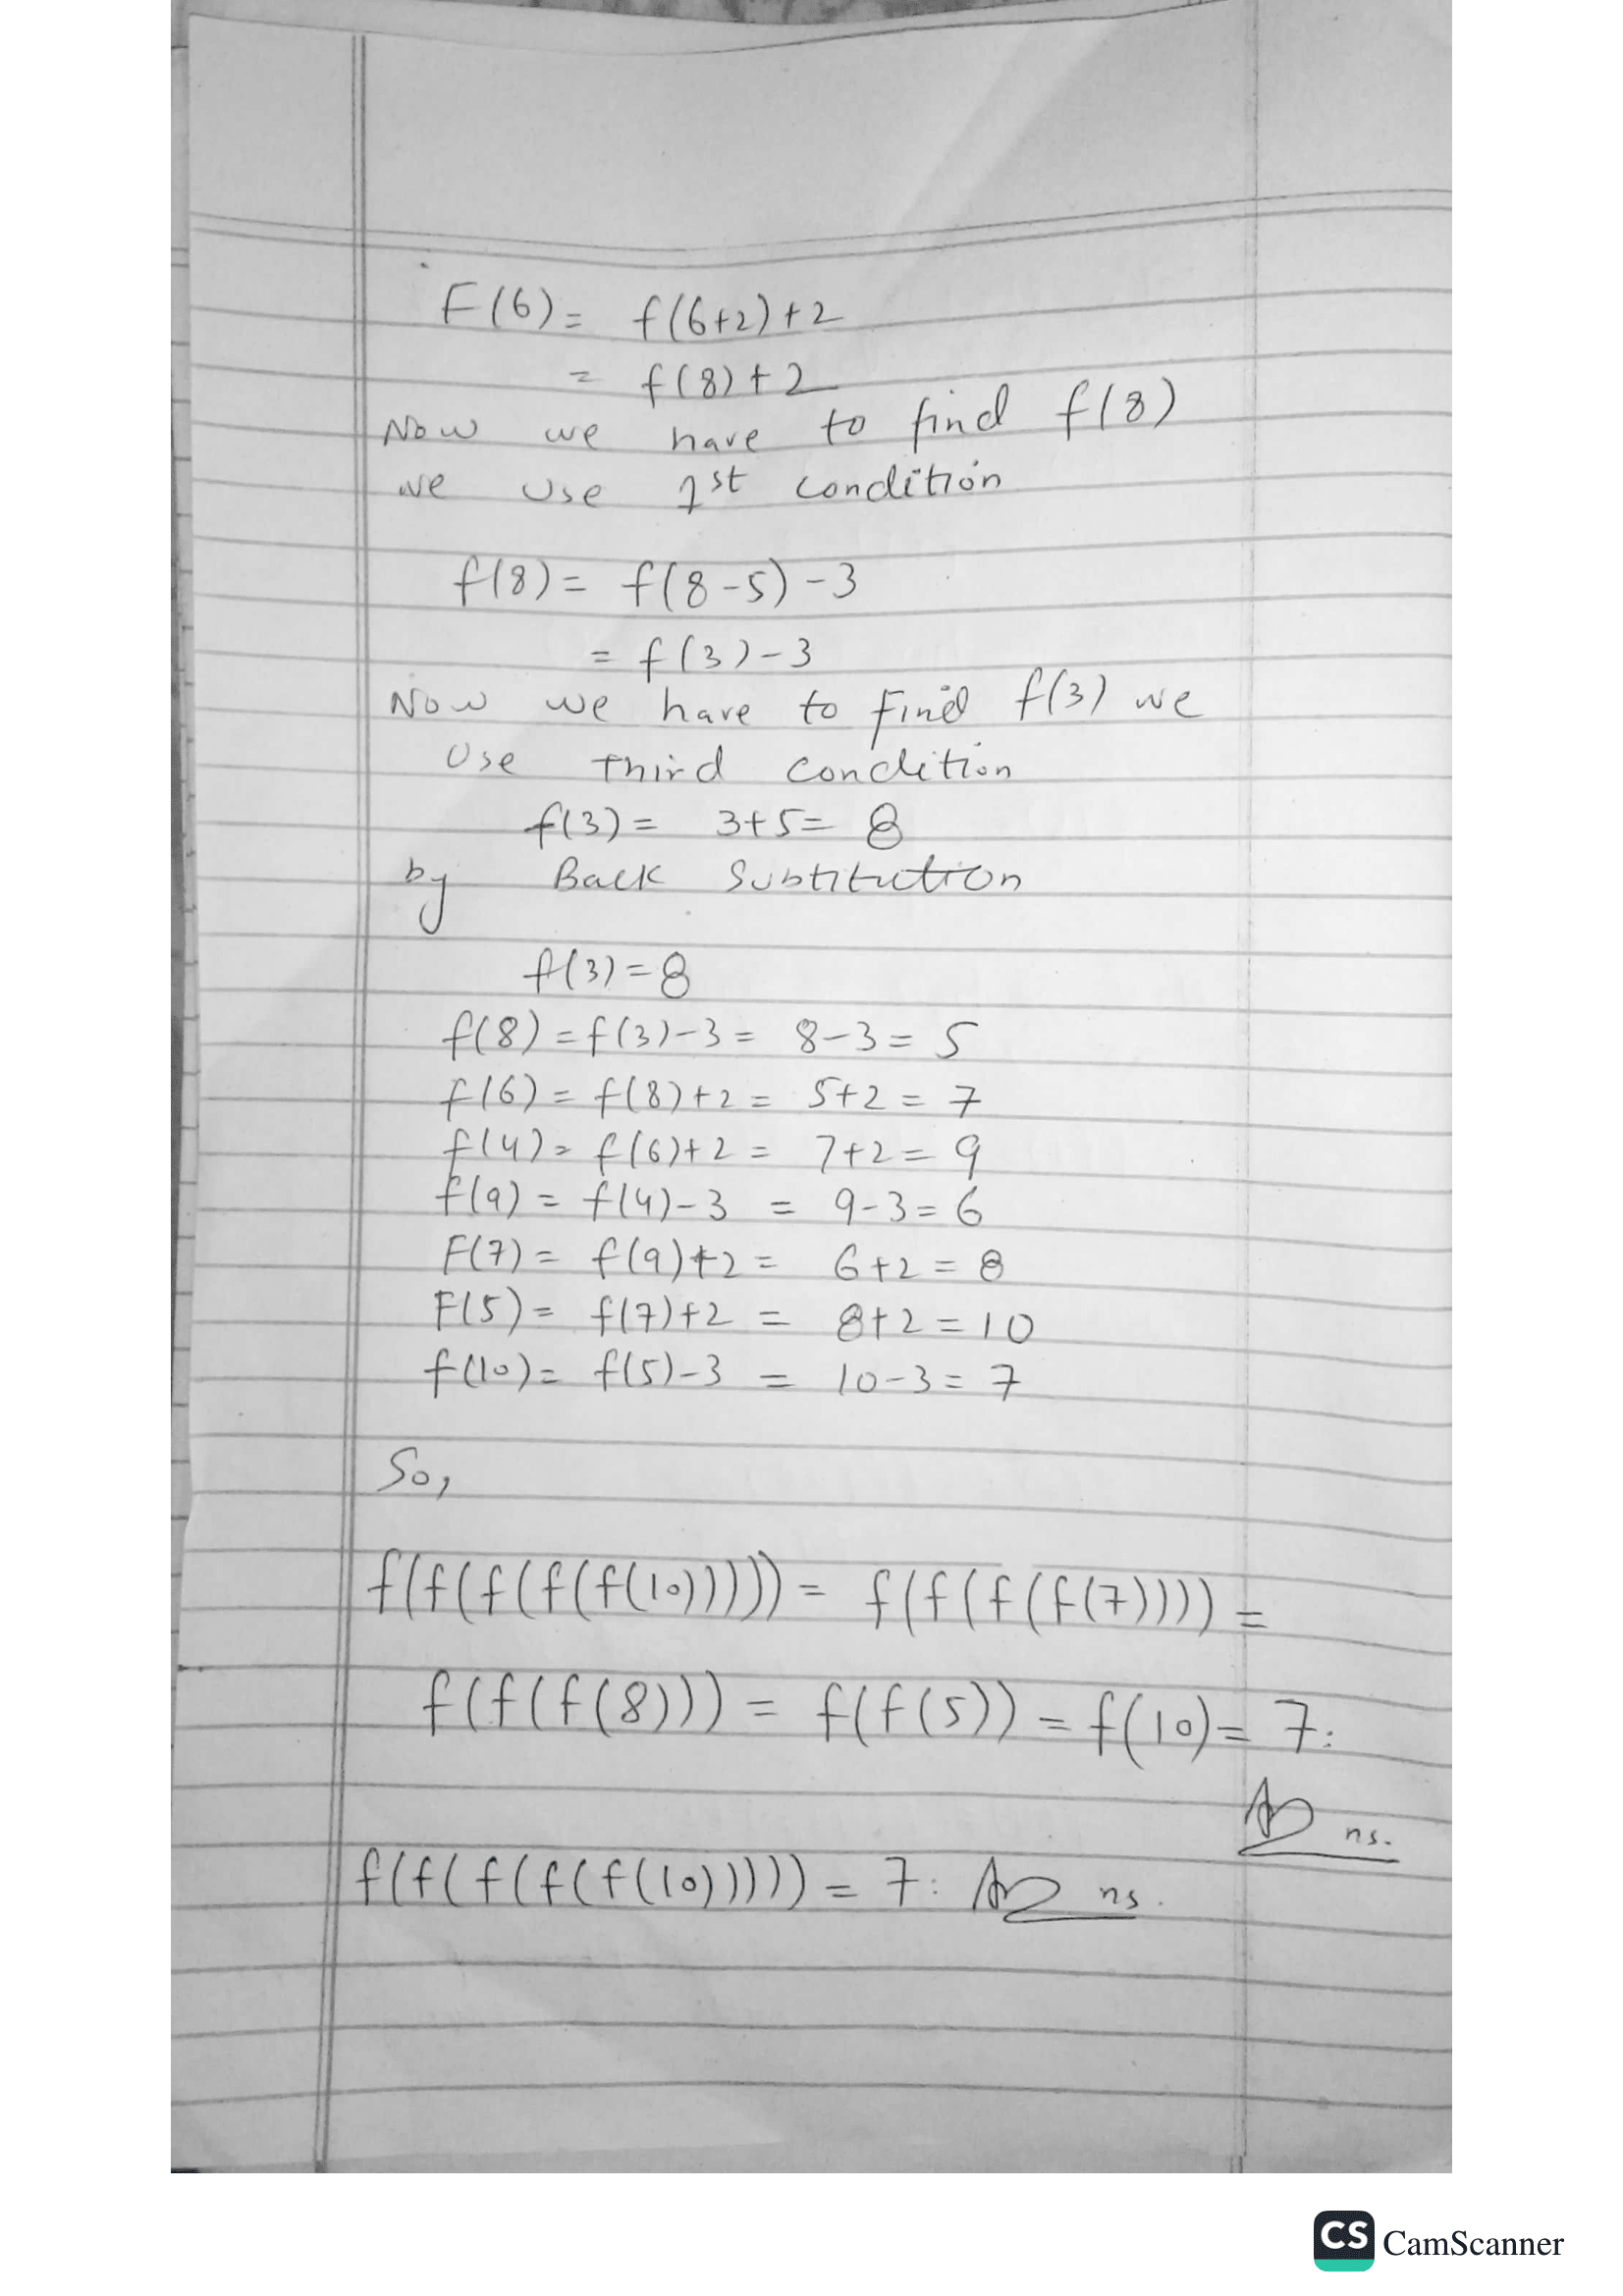 F(6) = f(6+2)+2
= f(8)+2
Now we have to find f(8)
we use 1st condition
f(8) = f(8-5)-3
= f(3)-3
Now we have to find f(3) we
Use Third condition
f(3) = 3+5= 8
by Back Subtitution
f(3)=8
f(8) = f(3)-3 = 8-3 = 5
f(6) = f(8)+2 = 5+2 = 7
f(4) = f(6)+2 = 7+2 = 9
f(9) = f(4)-3 = 9-3=6
F(7) = f(9)+2 = 6+2 = 8
F(5) = f(7)+2 = 8+2=10
f(10) = f(5)-3 = 10-3= 7
So,
f(f(f(f(f(10))))) = f(f(f(f(7)))) =
f(f(f(8))) = f(f(5)) = f(10) = 7:
Ans.
f(f(f(f(f(10))))) = 7: Ans.
CS CamScanner